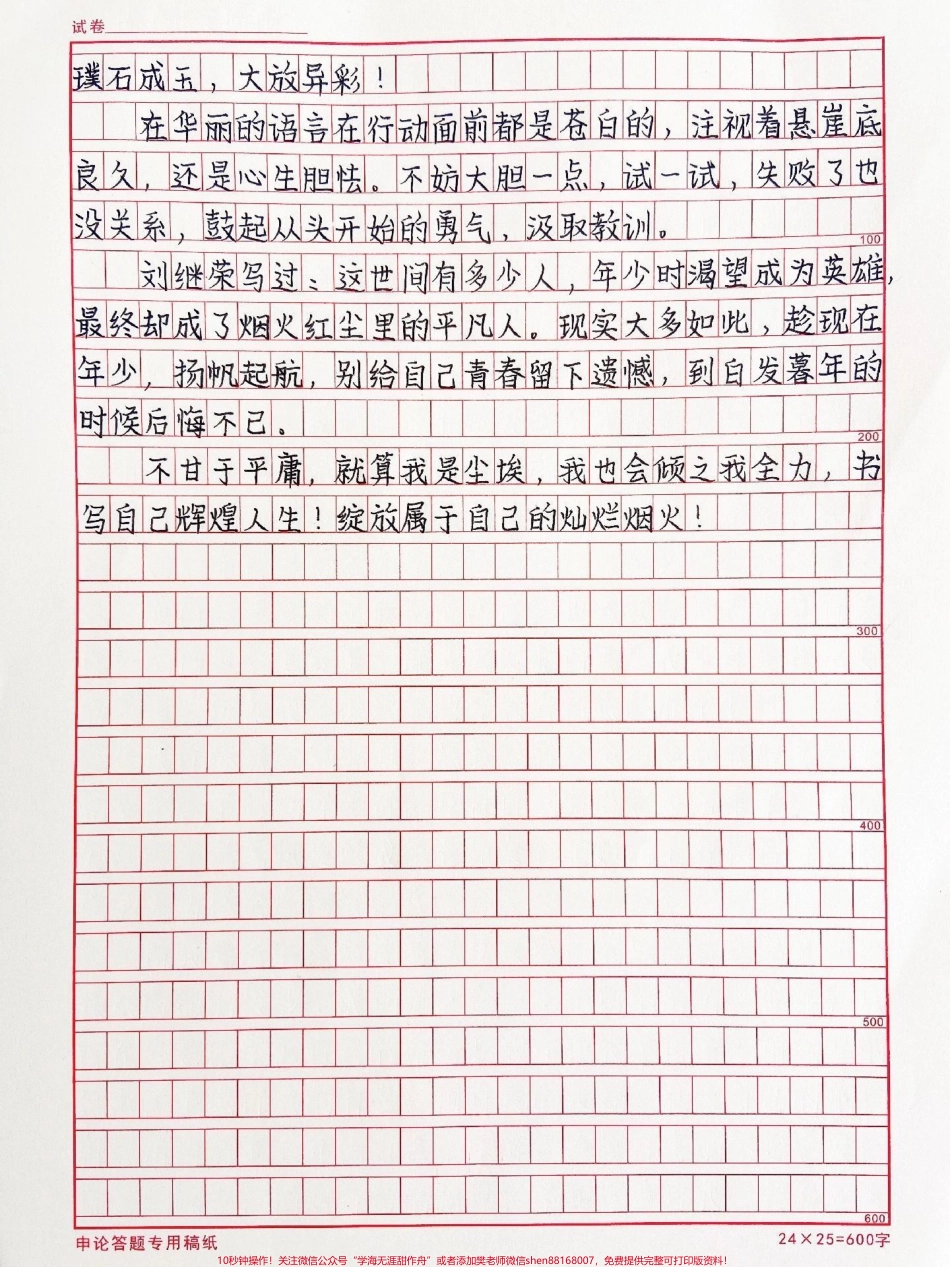 试卷
璞石成玉，大放异彩！
在华丽的语言在行动面前都是苍白的，注视着悬崖底
良久，还是心生胆怯。不妨大胆一点，试一试，失败了也
没关系，鼓起从头开始的勇气，汲取教训。
100
刘继荣写过：这世间有多少人，年少时渴望成为英雄，
最终却成了烟火红尘里的平凡人。现实大多如此，趁现在
年少，扬帆起航，别给自己青春留下遗憾，到白发暮年的
时候后悔不已。
200
不甘于平庸，就算我是尘埃，我也会倾之我全力，书
写自己辉煌人生！绽放属于自己的灿烂烟火！
300
400
500
600
申论答题专用稿纸
24×25=600字
10秒钟操作！关注微信公众号“学海无涯甜作舟”或者添加樊老师微信shen88168007，免费提供完整可打印版资料！